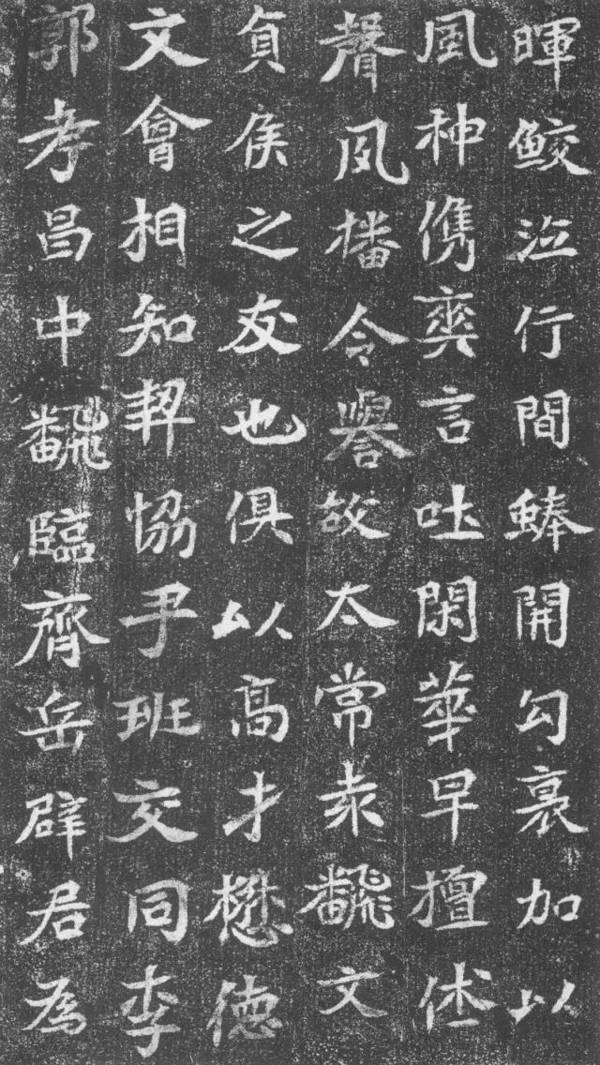 暉鮫泣行間開勾裏加以
風神儁爽言吐閑華早擅佳
聲夙播令譽故太常袁飜文
貞侯之友也俱以高才懋德
文會相知契協乎班交同李
郭孝昌中飜臨齊岳辟君為